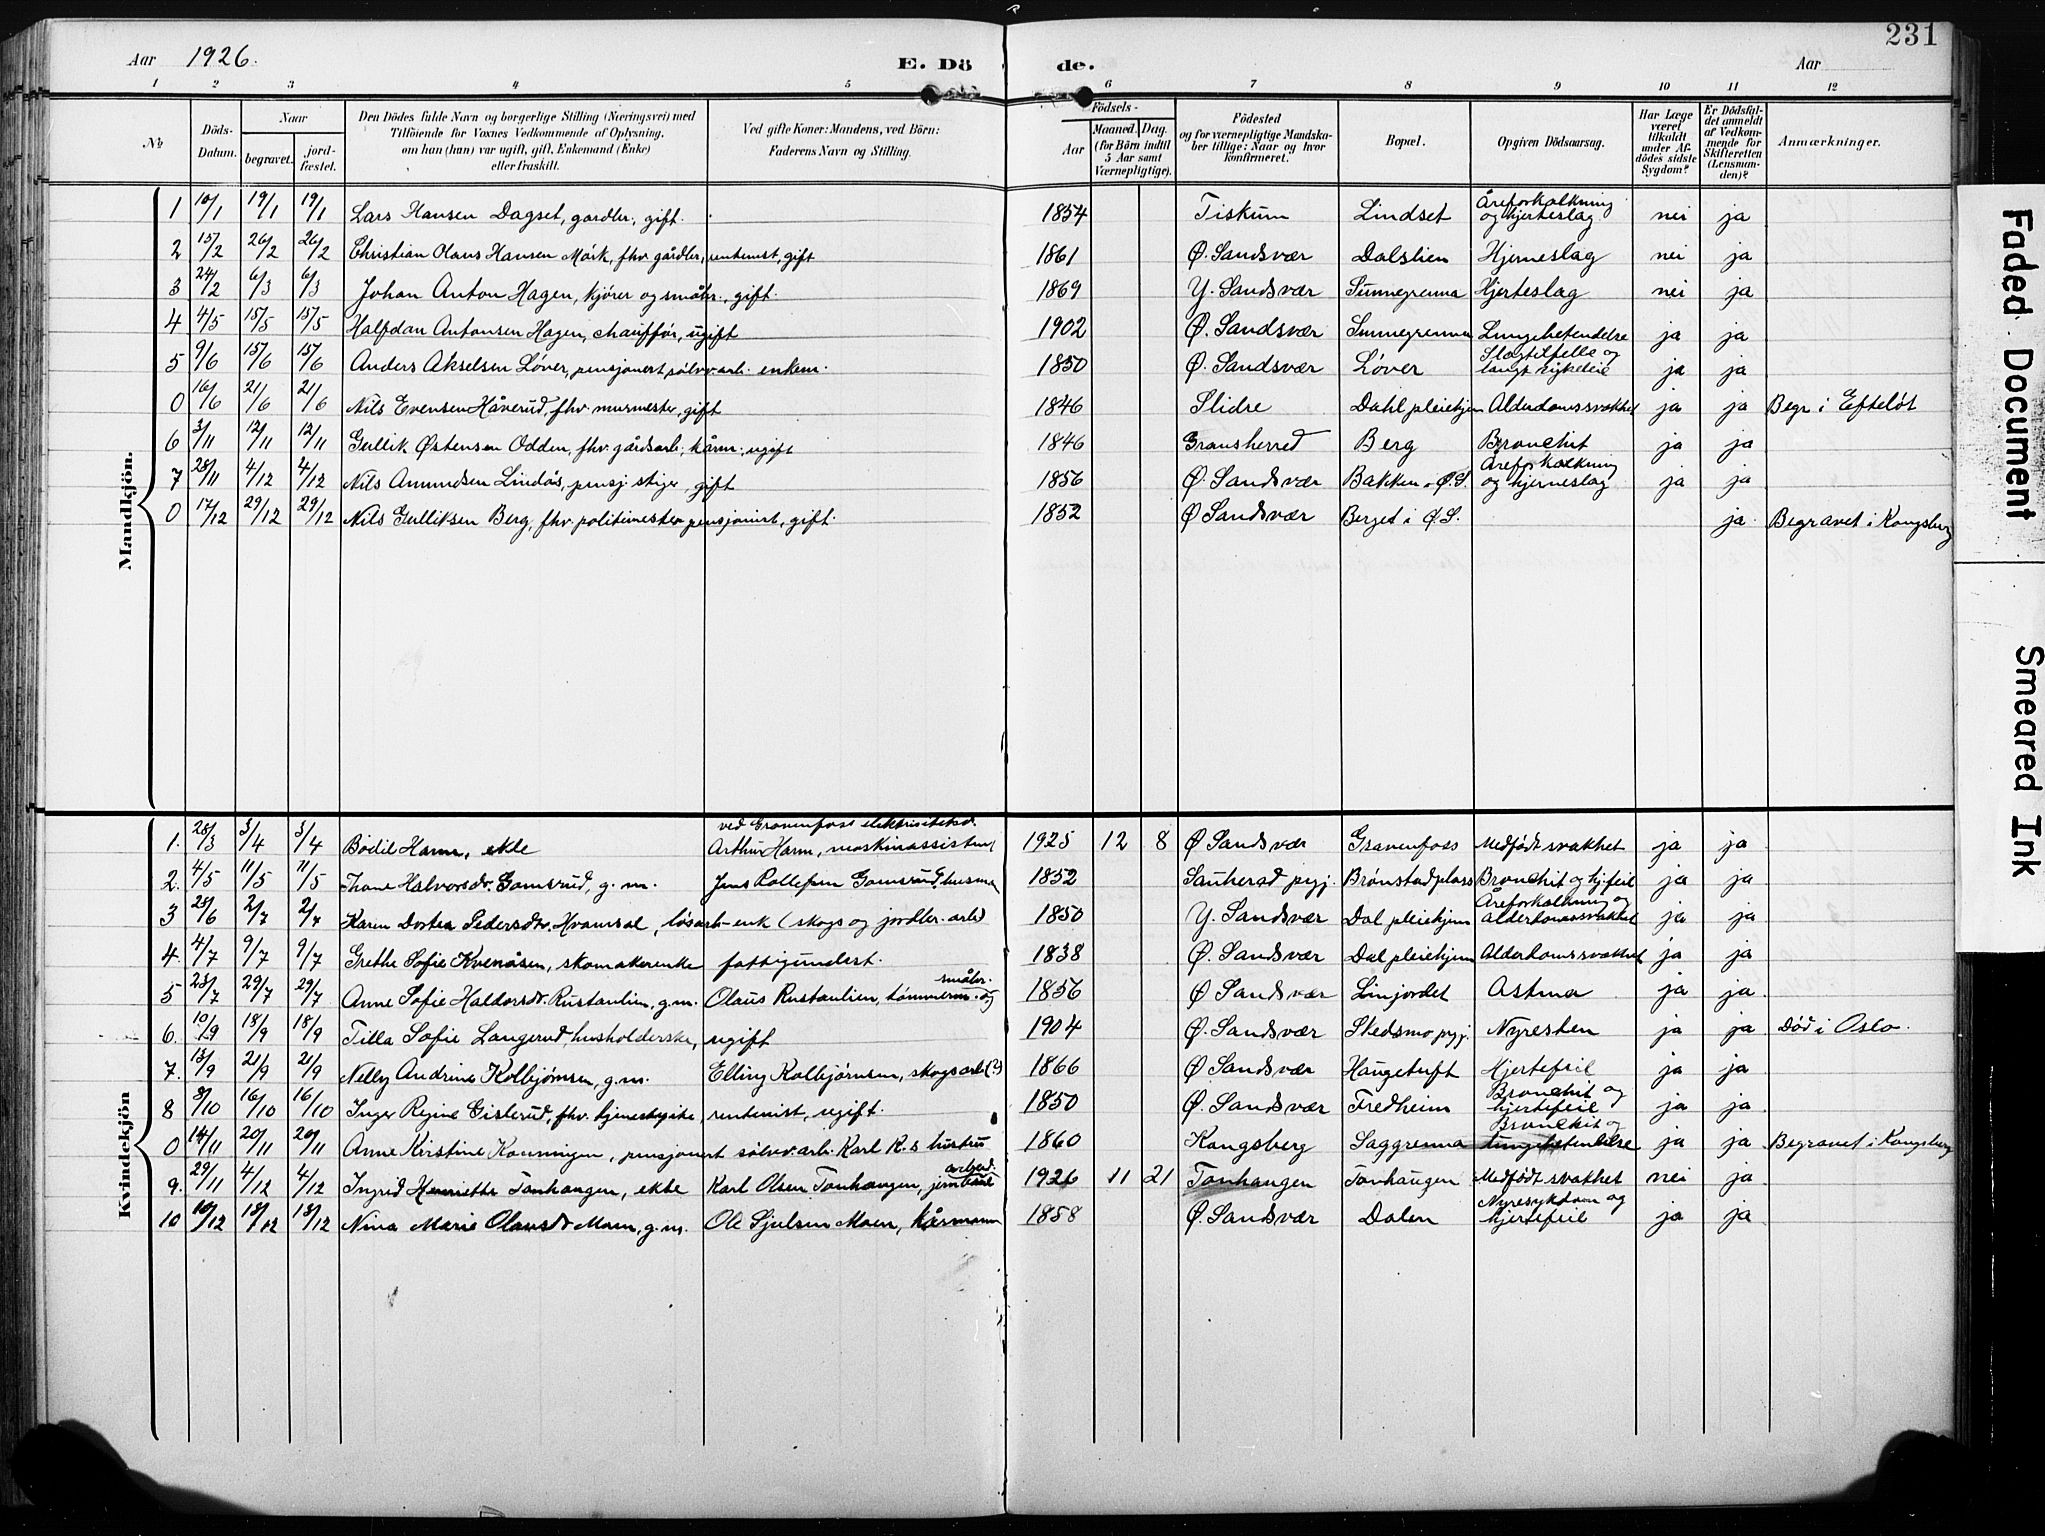 231
Aar 1926. E. Dö de. Aar
1 2 3 4 5 6 7 8 9 10 11 12
No
Döds-Datum.
Naar begravet. jordfæstet.
Den Dödes fulde Navn og borgerlige Stilling (Næringsvei) med Tilföiende for Voxnes Vedkommende af Oplysning. om han (hun) var ugift, gift, Enkemand (Enke) eller fraskilt.
Ved gifte Koner: Mandens, ved Börn: Faderens Navn og Stilling.
Födsels- Aar Maaned. Dag. (for Börn indtil 5 Aar samt Værnepligtige).
Födested og for værnepligtige Mandskaber tillige: Naar og hvor konfirmeret.
Bopæl.
Opgiven Dödsaarsag.
Har Læge været tilkaldt under Afdödes sidste Sygdom?
Er Dödsfaldet anmeldt af Vedkommende for Skifteretten (Lensmanden)?
Anmærkninger.
Mandkjön.
1 10/1 19/1 19/1 Lars Hansen Dagset, gardbr., gift. 1854 Fiskum Lindset Åreforkalkning og hjerteslag nei ja
2 15/2 26/2 26/2 Christian Olaus Hansen Mørk, fhv. gårdbr., rentenist, gift 1861 Ø. Sandsvær Dalslien Hjerneslag nei ja
3 24/2 6/3 6/3 Johan Anton Hagen, kjører og småbr., gift. 1869 Y. Sandsvær Sunnegrenna Hjerteslag nei ja
4 4/5 15/5 15/5 Halfdan Antonsen Hagen, chauffør, ugift 1902 Ø. Sandsvær Sunnegrenna Lungebetendelse ja ja
5 9/6 15/6 15/6 Anders Akselsen Løver, pensjonert sølvv.arb. enkem. 1850 Ø. Sandsvær Løver Slagtilfelle og langt sykeleie ja ja
0 16/6 21/6 21/6 Nils Evensen Håverud, fhv. murmester, gift 1846 Slidre Dahl pleiehjem Alderdomssvakhet ja ja Begr. i Efteløt
6 3/11 12/11 12/11 Gullik Østensen Odden, fhv. gårdsarb., kårm., ugift 1846 Gransherred Berg Bronchit ja ja
7 28/11 4/12 4/12 Nils Amundsen Lindås, pensj. stiger, gift 1856 Ø. Sandsvær Bakken Ø.S. Åreforkalkning og hjerneslag ja ja
0 17/12 29/12 29/12 Nils Gulliksen Berg, fhv. politimester pensjonert, gift. 1852 Ø Sandsvær Berget i Ø.S. ja Begravet i Kongsberg
Kvindekjön
1. 28/3 3/4 3/4 Bodil Harm, ekte Arthur Harm, maskinassistent ved Gravenfoss elektrisitetsv. 1925 12 8 Ø Sandsvær Gravenfoss Medfødt svakhet ja ja
2. 4/5 11/5 11/5 Thone Halvorsdr. Gamsrud, g.m. Jens Rollefsen Gamsrud, husm 1852 Sauherad pgj. Brønstadplass Bronchit og hj.feil ja ja
3 28/6 2/7 2/7 Karen Dortea Pedersdr. Hvamsal, løsarb. enk (skogs og jordbr. arb) 1850 Y. Sandsvær Dal pleiehjem Åreforkalkning og alderdomssvakhet ja ja
4. 4/7 9/7 9/7 Grethe Sofie Kvenåsen, skomakerenke fattigunderst. 1838 Ø. Sandsvær Dal pleiehjem Alderdomssvakhet ja ja
5 23/7 29/7 29/7 Anne Sofie Haldorsdr. Rustanlien, g.m. Olaus Rustanlien, tømmerm. og småbr. 1856 Ø Sandsvær Linjordet Astma ja ja
6. 10/9 18/9 18/9 Tilla Sofie Langerud, husholderske, ugift 1904 Ø. Sandsvær Skedsmo pgj. Nyresten ja ja Død i Oslo.
7. 13/9 21/9 21/9 Nelly Andrine Kolbjørnsen, g.m. Elling Kolbjørnsen, skogsarb (?) 1866 Ø Sandsvær Haugetuft Hjertefeil ja ja
8 8/10 16/10 16/10 Inger Regine Gislerud, fhv. tjenestepike, rentenist, ugift. 1850 Ø. Sandsvær Fredheim Bronchit og hjertefeil ja ja
0 14/11 20/11 20/11 Anne Kirstine Kønningen, pensjonert sølvv.arb. Karl K.s hustru 1860 Kongsberg Saggrenna Bronchit og lungebetendelse ja ja Begravet i Kongsberg
9. 29/11 4/12 4/12 Ingrid Henriette Tanhaugen, ekte Karl Olsen Tanhaugen, jernbane arbeid. 1926 11 21 Tanhaugen Tanhaugen Medfødt svakhet nei ja
10 10/12 18/12 18/12 Nina Marie Olausdr. Moen, g.m. Ole Sjulsen Moen, kårmann 1858 Ø. Sandsvær Dalen Nyresykdom og hjertefeil ja ja
Faded Document
Smeared Ink